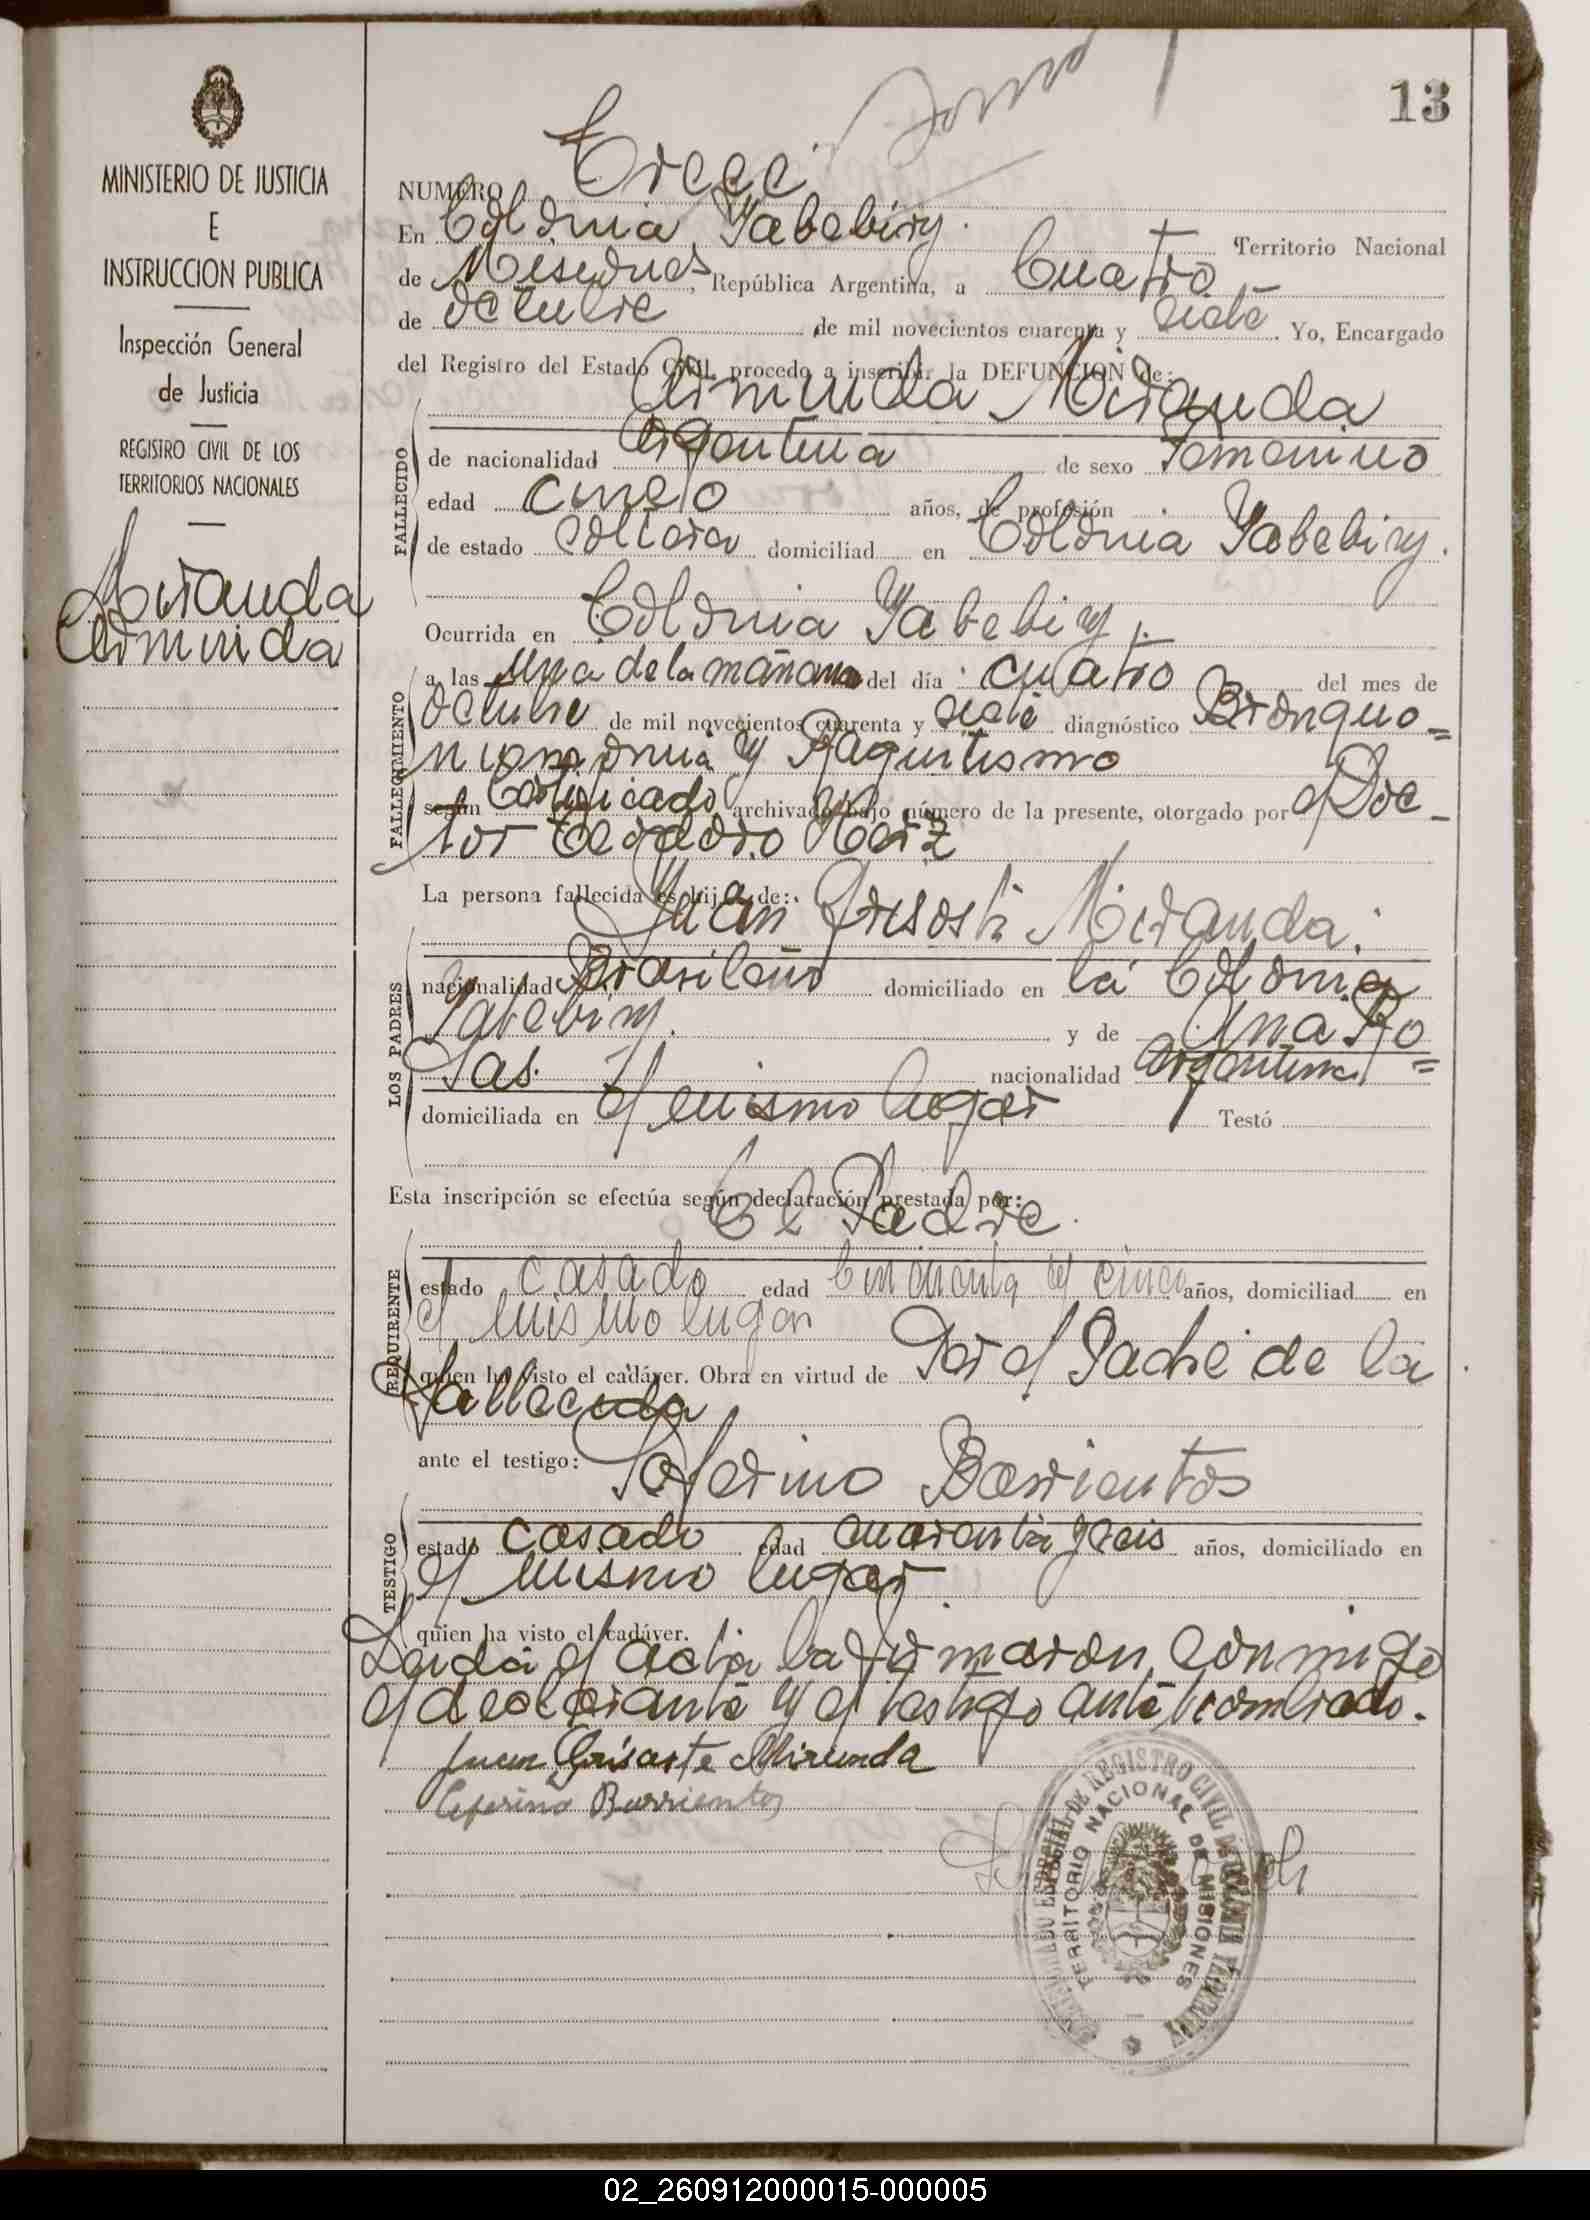 13
MINISTERIO DE JUSTICIA
E
INSTRUCCION PUBLICA
Inspección General
de Justicia
REGISTRO CIVIL DE LOS
TERRITORIOS NACIONALES
Miranda
Arminda
NUMERO Trece
En Colonia Yabebiry. Territorio Nacional
de Misiones, República Argentina, a Cuatro
de octubre de mil novecientos cuarenta y siete. Yo, Encargado
del Registro del Estado Civil, procedo a inscribir la DEFUNCION de:
Arminda Miranda
FALLECIDO
de nacionalidad Argentina de sexo Femenino
edad cinco años, de profesión
de estado soltera domiciliad en Colonia Yabebiry.
FALLECIMIENTO
Ocurrida en Colonia Yabebiry.
a las una de la mañana del día cuatro del mes de
octubre de mil novecientos cuarenta y siete diagnóstico Bronquo=
niomonia y Raquitismo
según Certificado archivado bajo número de la presente, otorgado por el Doc-
tor
La persona fallecida es hija de:
Juan Grisoste Miranda.
LOS PADRES
nacionalidad Brasileño domiciliado en la Colonia
Yabebiry. y de Ana Ro=
sas. nacionalidad Argentina
domiciliada en el mismo lugar Testó
Esta inscripción se efectúa según declaración prestada por:
El Padre.
REQUIRENTE
estado casado edad cincuenta y cinco años, domiciliad en
el mismo lugar
quien ha visto el cadáver. Obra en virtud de Por el Padre de la
fallecida
ante el testigo:
Seferino Barrientos
TESTIGO
estado casado edad cuarenta y seis años, domiciliado en
el mismo lugar
quien ha visto el cadáver.
Leida el acta la firmaron conmigo
el declarante y el testigo ante nombrado.
Juan Grisoste Miranda
Ceferino Barrientos
REGISTRO CIVIL
TERRITORIO NACIONAL DE MISIONES
02_260912000015-000005